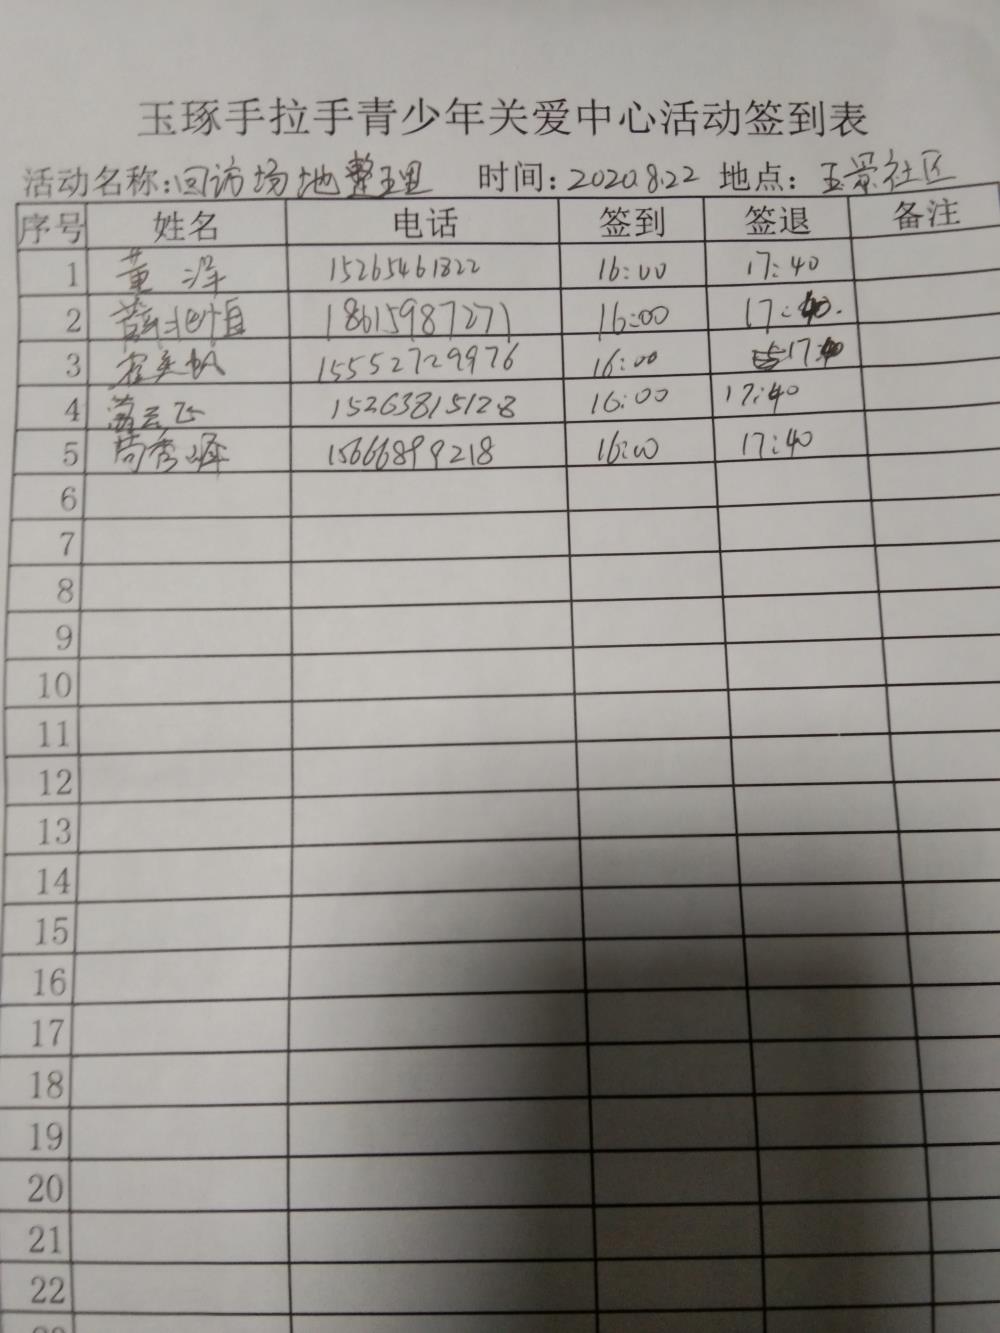 玉琢手拉手青少年关爱中心活动签到表
活动名称:回访场地整理 时间:2020.8.22 地点:玉景社区
序号 姓名 电话 签到 签退 备注
1 董泽 15265461822 16:00 17:40
2 18615987271 16:00 17:40.
3 15552729976 16:00 17:40
4 15263815128 16:00 17:40
5 15666899218 16:00 17:40
6
7
8
9
10
11
12
13
14
15
16
17
18
19
20
21
22